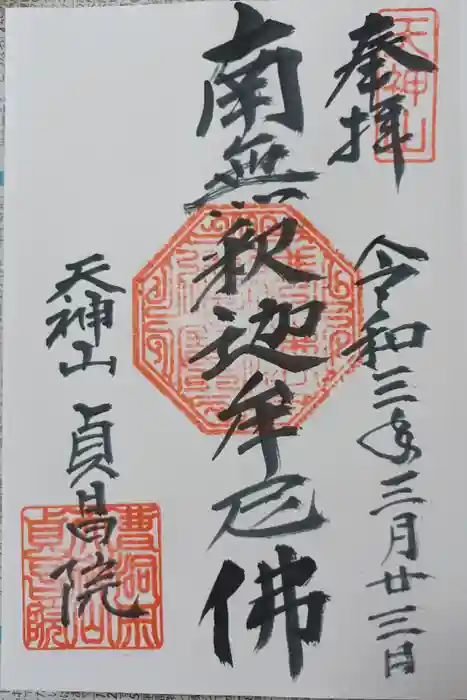 天神山
奉拝
令和三年三月廿三日
南無釈迦牟尼佛
天神山 貞昌院
曹洞宗
天神山
貞昌院